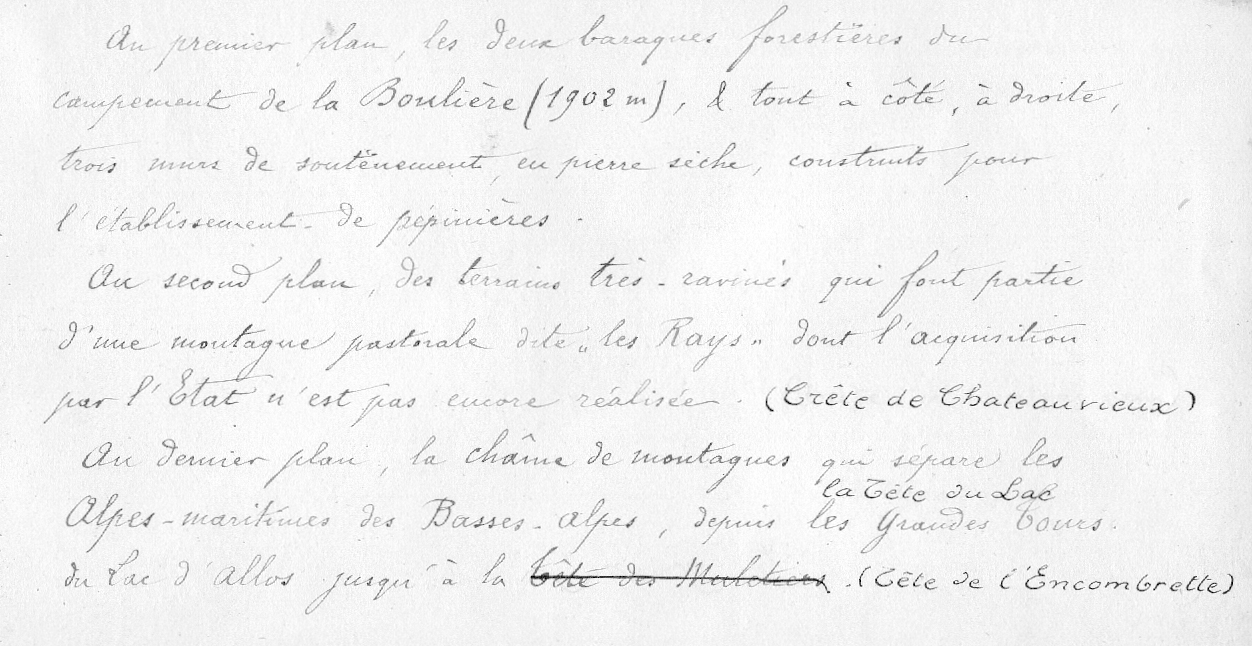 Au premier plan, les deux baraques forestières du
campement de la Boulière (1902 m), & tout à côté, à droite,
trois murs de soutènement, en pierre sèche, construits pour
l'établissement de pépinières.
Au second plan, des terrains très-ravinés qui font partie
d'une montagne pastorale dite „les Rays" dont l'acquisition
par l'Etat n'est pas encore réalisée. (Crête de Chateauvieux)
Au dernier plan, la chaîne de montagnes qui sépare les
la Tête du Lac
Alpes-maritimes des Basses-alpes, depuis les Grandes Tours.
du Lac d'Allos jusqu'à la Tête des Muletiers. (Tête de l'Encombrette)